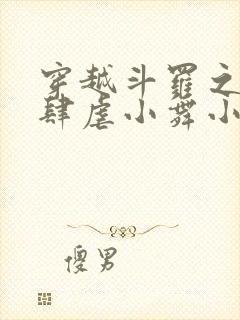 穿越斗罗之
肆虐小舞小
傻男